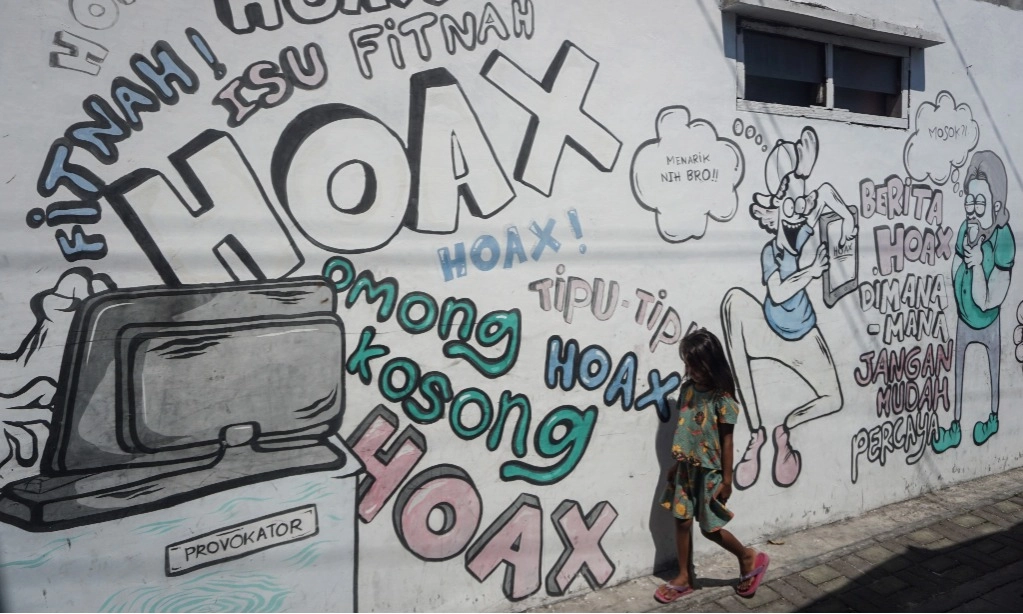 HO
HOAX
ISU FITNAH
FITNAH!
FITNAH!
HOAX
HOAX!
OMONG
KOSONG
TIPU-TIPU
HOAX
HOAX
PROVOKATOR
MENARIK
NIH BRO!!
HOAX
MOSOK?!
BERITA
HOAX
DIMANA
-MANA
JANGAN
MUDAH
PERCAYA